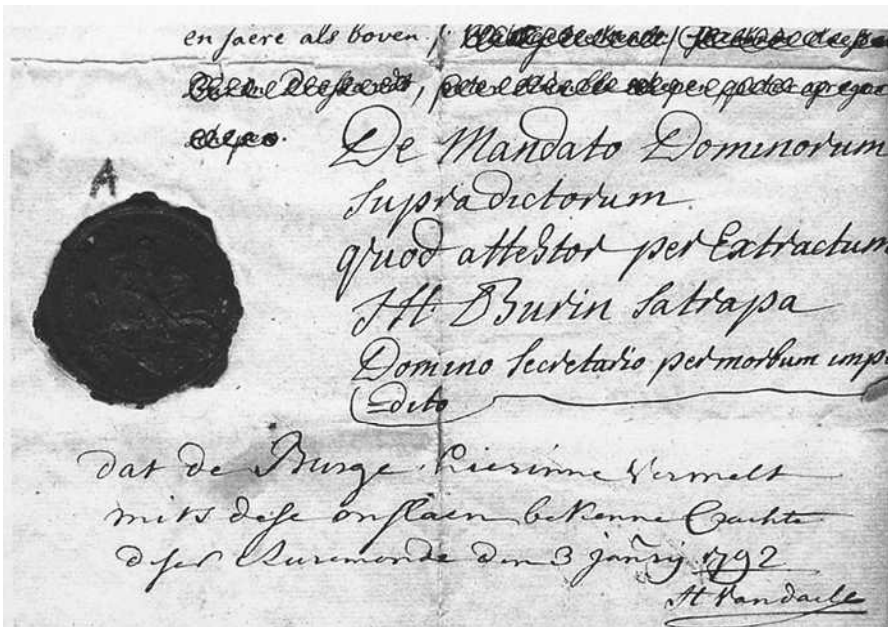 en jaere als boven /
A
De Mandato Dominorum
supradictorum
quod attestor per Extractum
JH Burin Satrapa
Domino Secretario per morbum imp
=dito
dat de Burge hierinne vermelt
mits dese onslaen bekenne Crachte
deser Ruremonde den 3 jañrij 1792